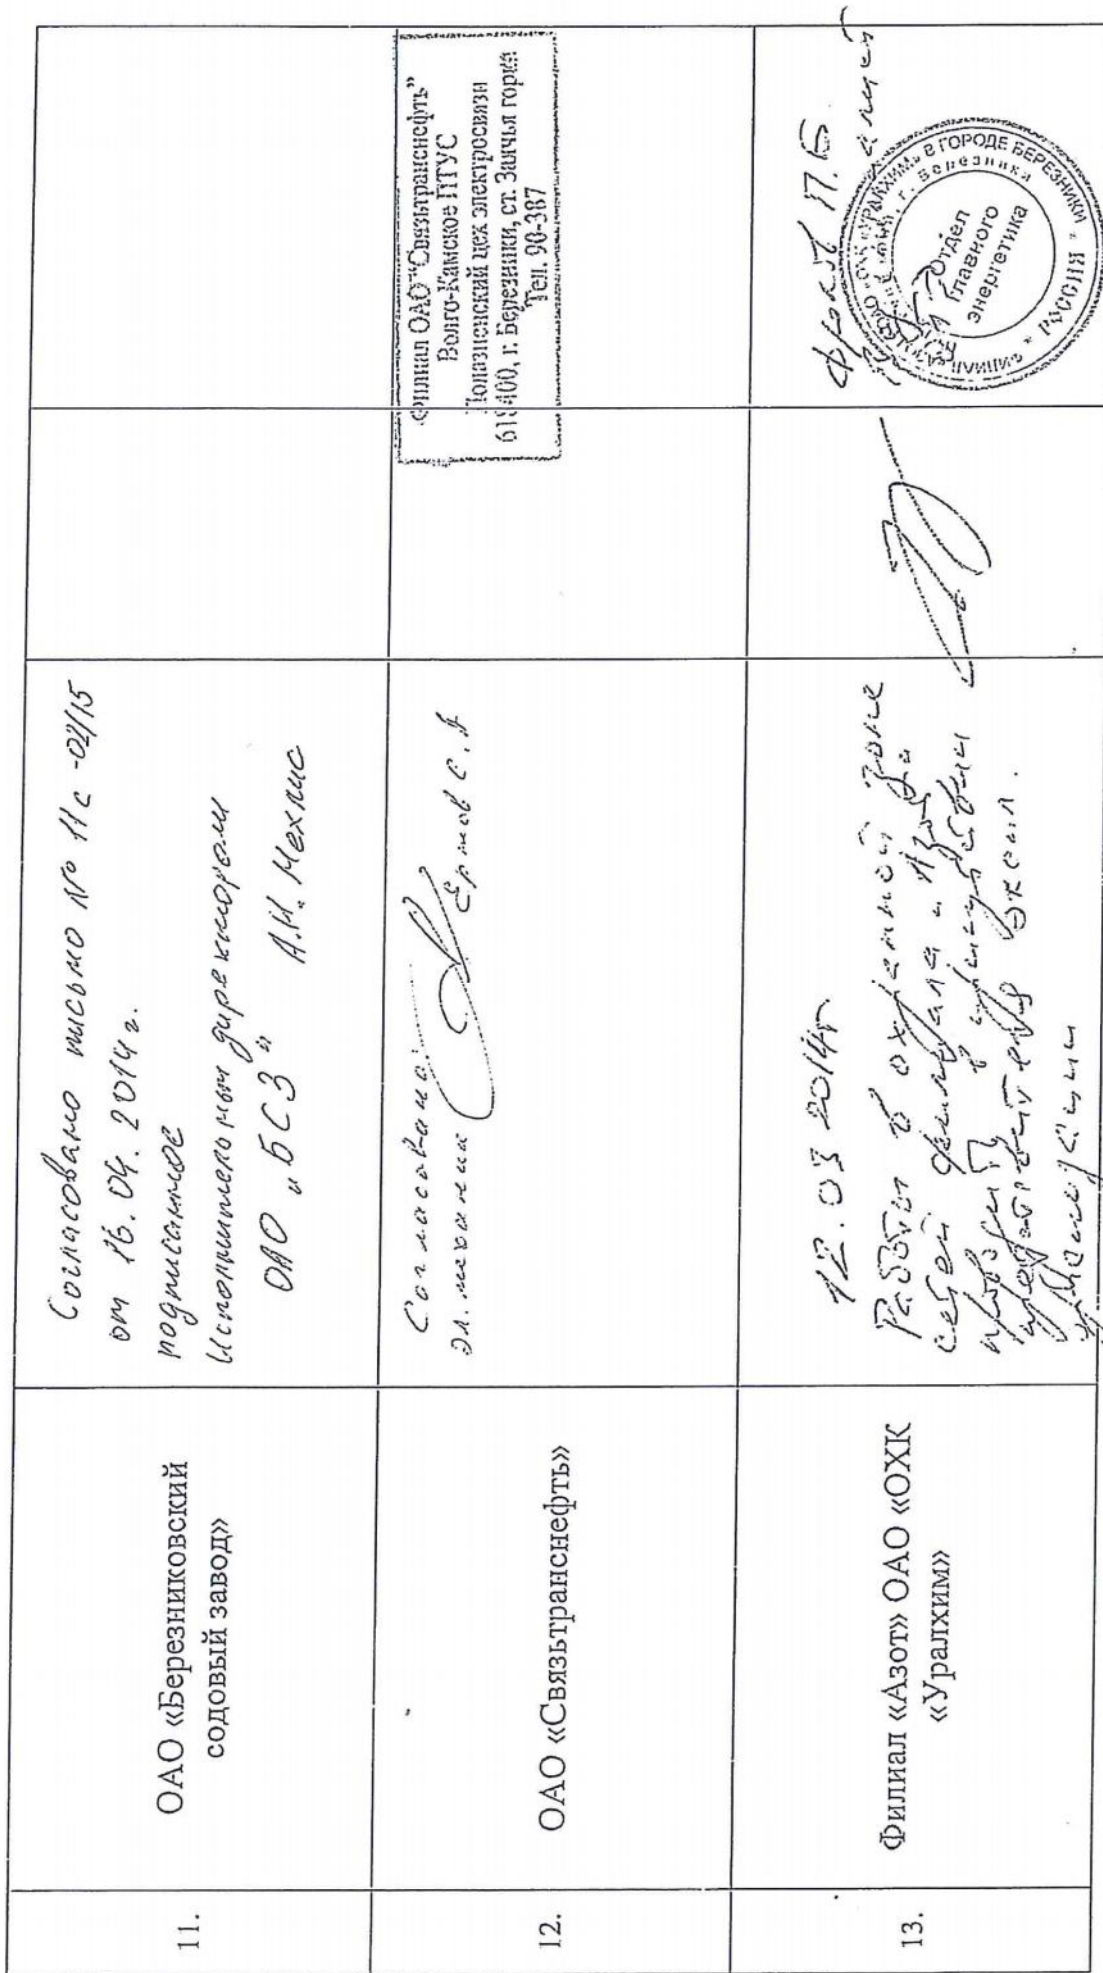 11.
ОАО «Березниковский
содовый завод»
Согласовано письмо № 11с -02/15
от 16.04.2014г.
подписанное
Исполнительным директором
ОАО „БСЗ" А.И. Мехлис
12.
ОАО «Связьтранснефть»
Согласовано
эл. механик Ермов С.А
Филиал ОАО "Связьтранснефть"
Волго-Камское ПТУС
Полазненский цех электросвязи
618400, г. Березники, ст. Заячья горка
Тел. 90-387
13.
Филиал «Азот» ОАО «ОХК
«Уралхим»
12.03 2014г
Работы в охранной зоне
сетей филиала „Азот"
в присутствии
представителя
П.Б
ФИЛИАЛ «АЗОТ» ОАО «ОХК «УРАЛХИМ» В ГОРОДЕ БЕРЕЗНИКИ * РОССИЯ *
г. Березники
Отдел
Главного
энергетика